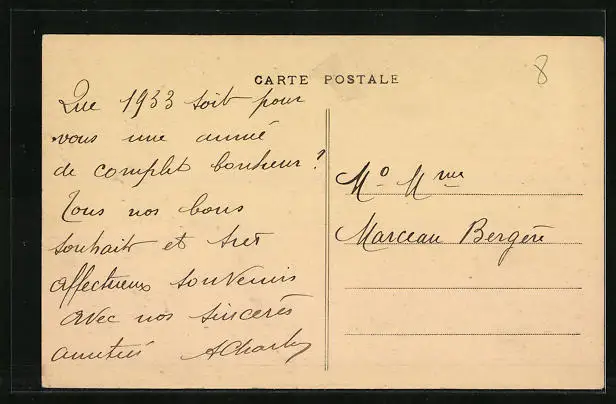 8
CARTE POSTALE
Que 1933 soit pour
vous une année
de complet bonheur !
Tous nos bons
souhaits et très
affectueux souvenirs
avec nos sincères
amitiés ACharley
Mr Mme
Marceau Bergère